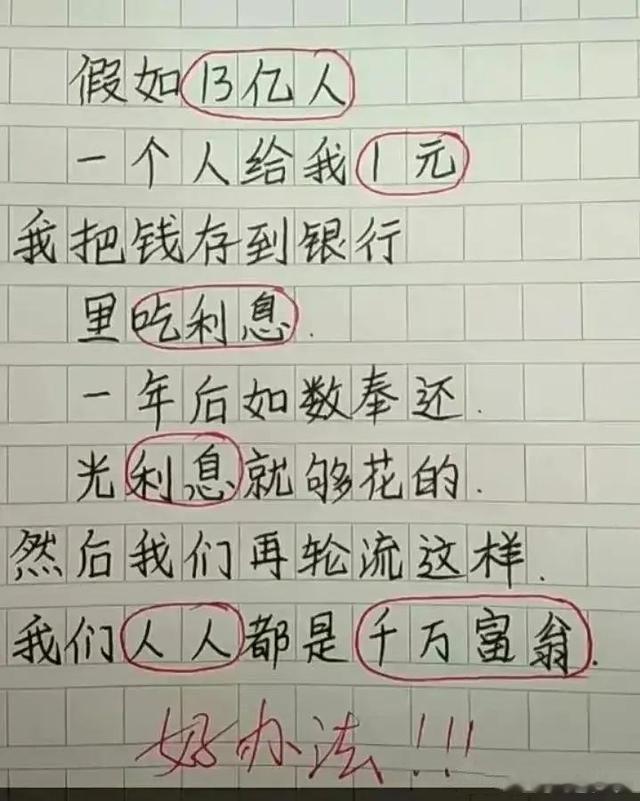 假如13亿人
一个人给我1元
我把钱存到银行
里吃利息.
一年后如数奉还.
光利息就够花的.
然后我们再轮流这样.
我们人人都是千万富翁.
好办法!!!